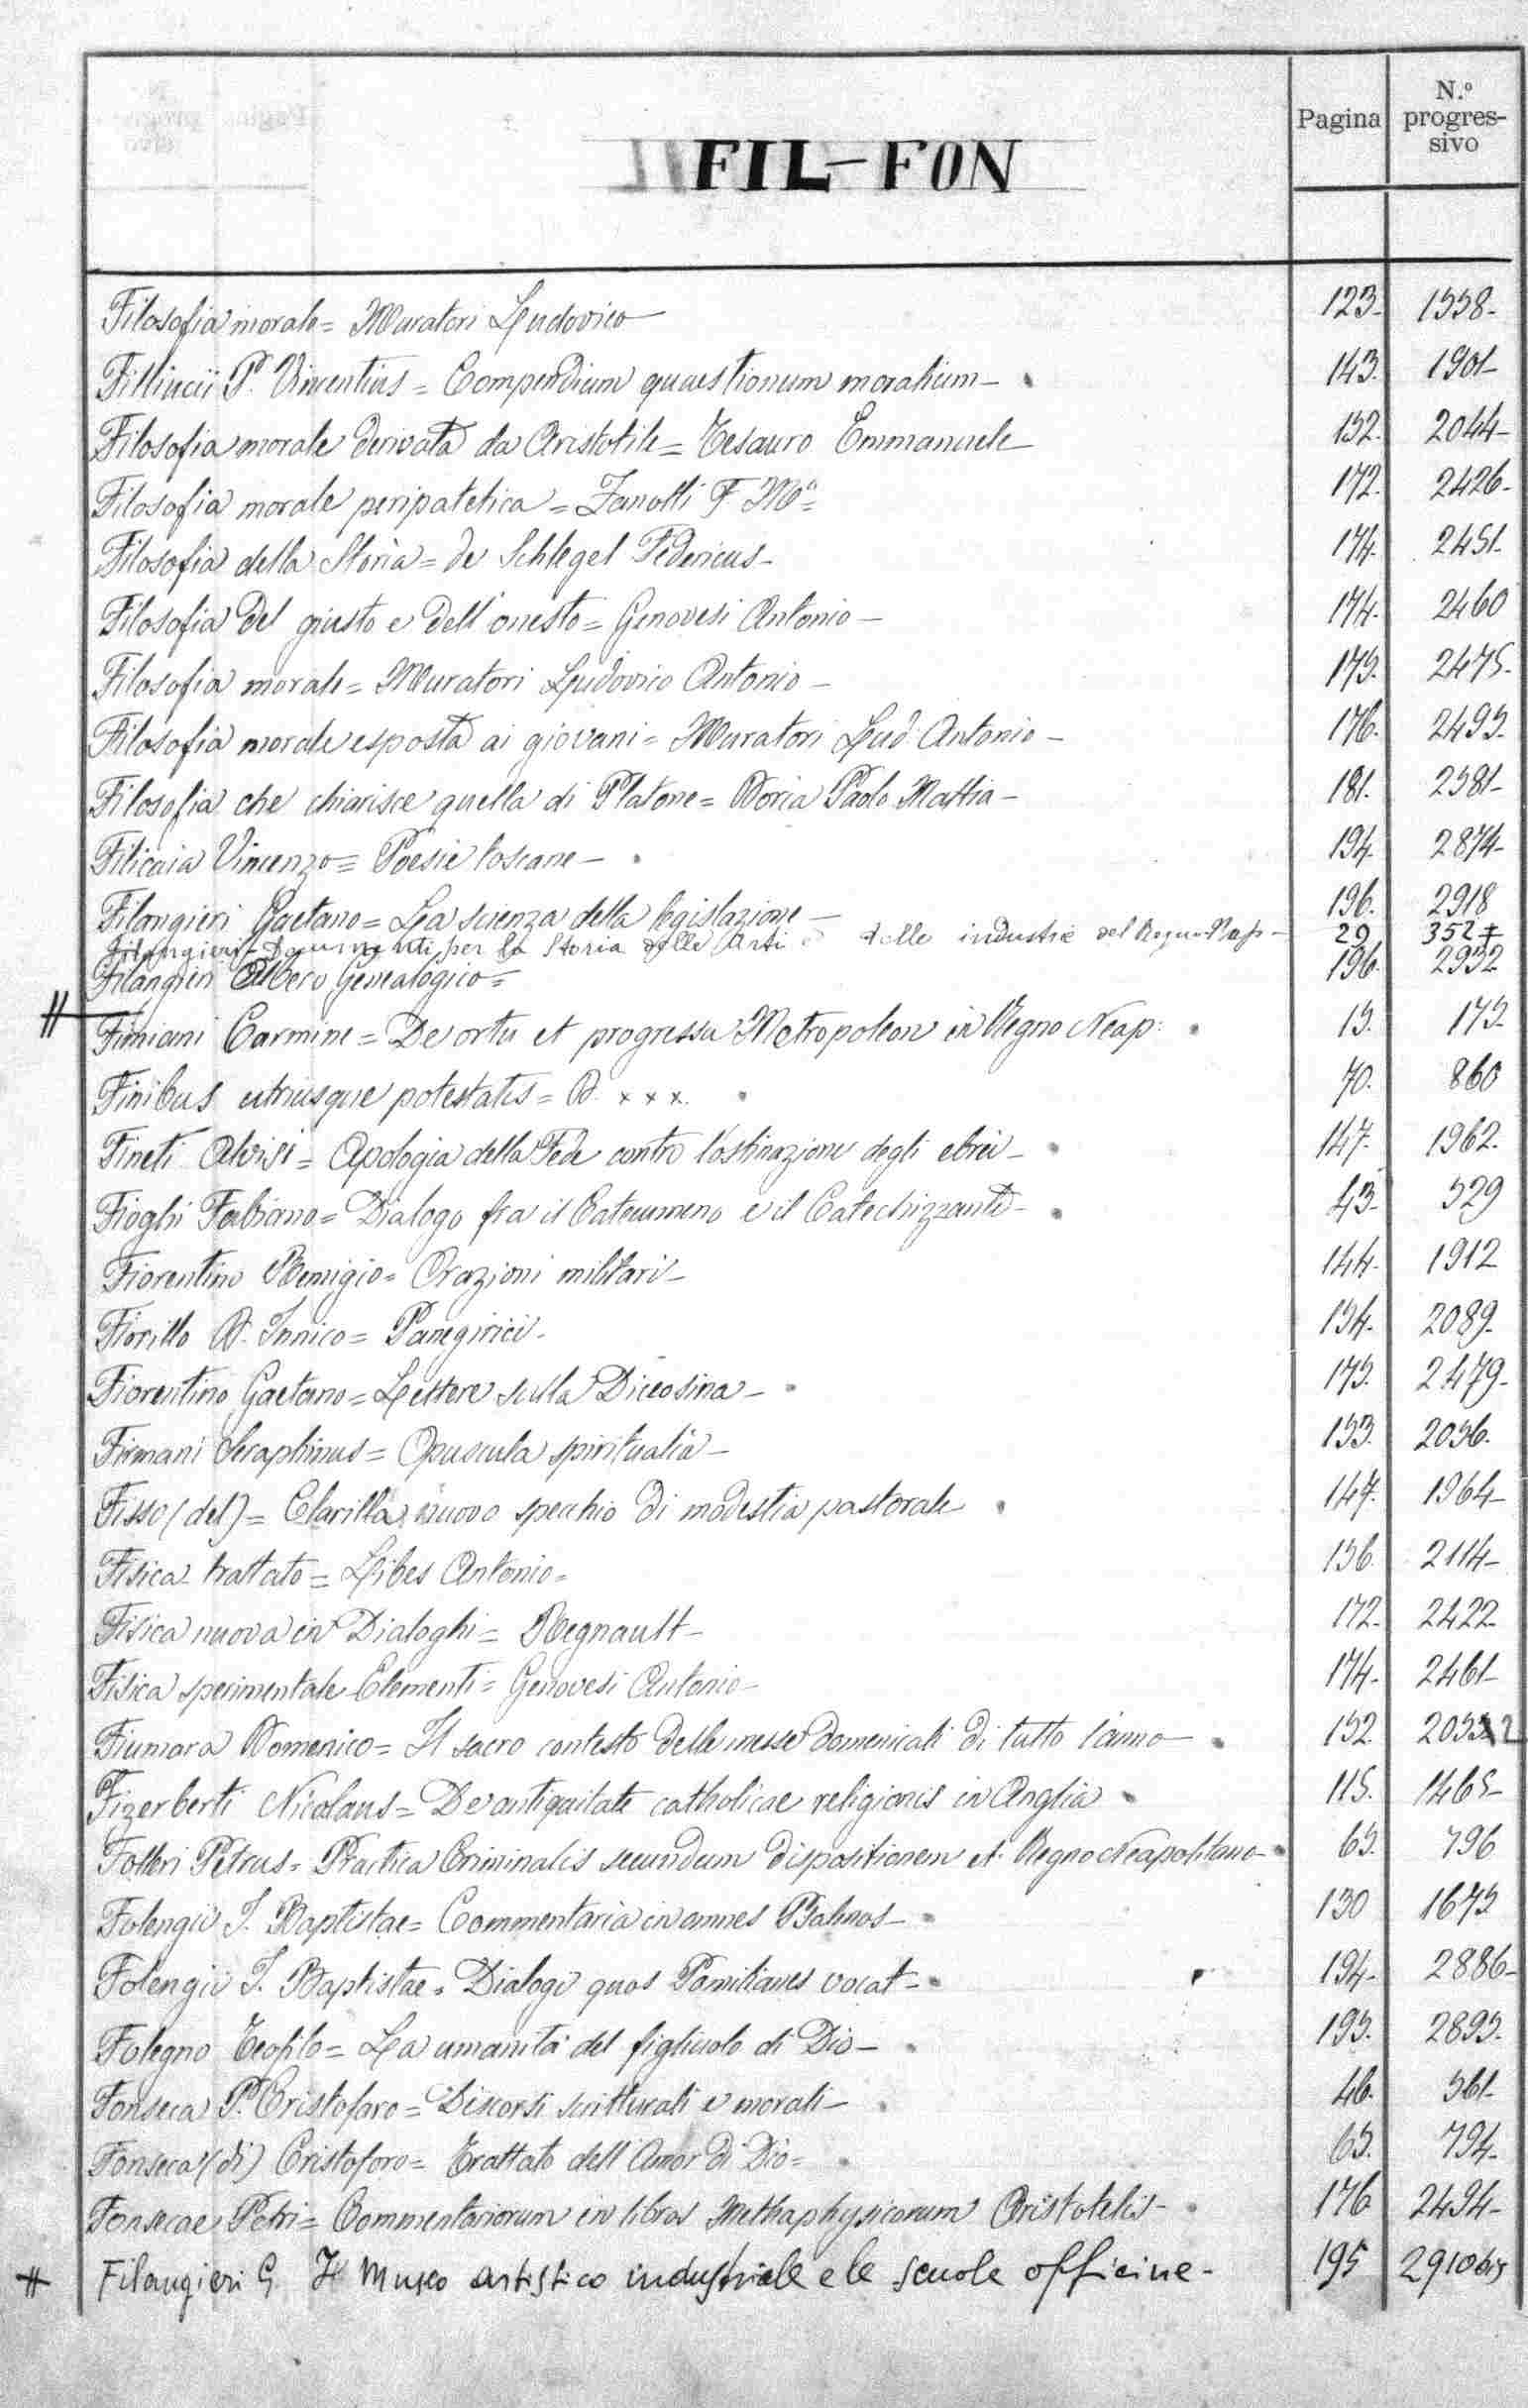 FIL-FON
Pagina
N.º progres-sivo
Filosofia morale = Muratori Ludovico 123. 1558.
Filliucii P. Vincentius = Compendium quaestionum moralium - 143. 1901-
Filosofia morale derivata da Aristotile = Tesauro Emmanuele 152. 2044-
Filosofia morale peripatetica = Zanotti F. Mª = 172. 2426-
Filosofia della Storia = de Schlegel Federicus - 174. 2451-
Filosofia del giusto e dell'onesto = Genovesi Antonio - 174. 2460
Filosofia morale = Muratori Ludovico Antonio - 175. 2475.
Filosofia morale esposta ai giovani = Muratori Lud. Antonio - 176. 2493.
Filosofia che chiarisce quella di Platone = Doria Paolo Mattia - 181. 2581-
Filicaia Vincenzo = Poesie toscane - 194. 2874-
Filangieri Gaetano = La scienza della legislazione - 196. 2918
Filangieri - Documenti per la Storia delle Arti e delle industrie del Regno Nap - 29 352 ‡
Filangieri Albero Genealogico = 196. 2932
Fimiani Carmine = De ortu et progressu Metropoleon in Regno Neap: 15. 175.
Finibus utriusque potestatis = D. x x x. 70. 860
Fineti Alvisi = Apologia della Fede contro l'ostinazione degli ebrei - 147. 1962.
Fioghi Fabiano = Dialogo fra il Catecumeno e il Catechizzante - 43- 529
Fiorentino Remigio = Orazioni militari - 144. 1912
Fiorillo D. Innico = Panegirici - 154. 2089.
Fiorentino Gaetano = Lettere sulla Diceosina - 175. 2479-
Firmani Seraphinus = Opuscula spiritualia - 153. 2056.
Fisso (del) = Clarilla, nuovo specchio di modestia pastorale 147. 1964-
Fisica trattato = Libes Antonio = 156. 2114-
Fisica nuova in Dialoghi = Regnault - 172. 2422
Fisica sperimentale Elementi = Genovesi Antonio - 174. 2461-
Fiumara Domenico = Il sacro contesto delle messe domenicali di tutto l'anno - 152. 2032
Fizerberti Nicolaus = De antiquitate catholicae religionis in Anglia 115. 1465-
Folleri Petrus = Practica Criminalis secundum dispositionem et Regno Neapolitano - 65. 796
Folengii J. Baptistae = Commentaria in omnes Psalmos - 130 1675
Folengii J. Baptistae = Dialogi quos Pomilianes vocat - 194- 2886-
Folegno Teofilo = La umanità del figliuolo di Dio - 195. 2895.
Fonseca P. Cristofaro = Discorsi scritturali e morali - 46. 561-
Fonseca (di) Cristoforo = Trattato dell'Amor di Dio = 65. 794-
Fonsecae Petri = Commentariorum in libros Methaphysicorum Aristotelis - 176 2494-
Filangieri G. Il Museo artistico industriale e le scuole officine - 195 2910 bis